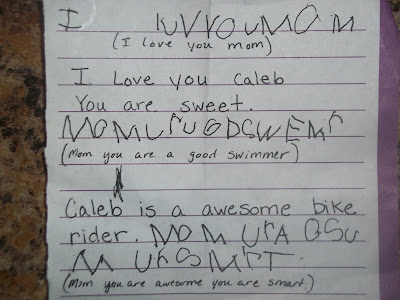 I luvvou MOM
(I love you mom)
I Love you Caleb
You are sweet.
MOMUrUGDSWEMr
(Mom you are a good swimmer)
Caleb is a awesome bike
rider. MOM UrA OSu
M UrSMrT.
(Mom you are awesome you are smart)